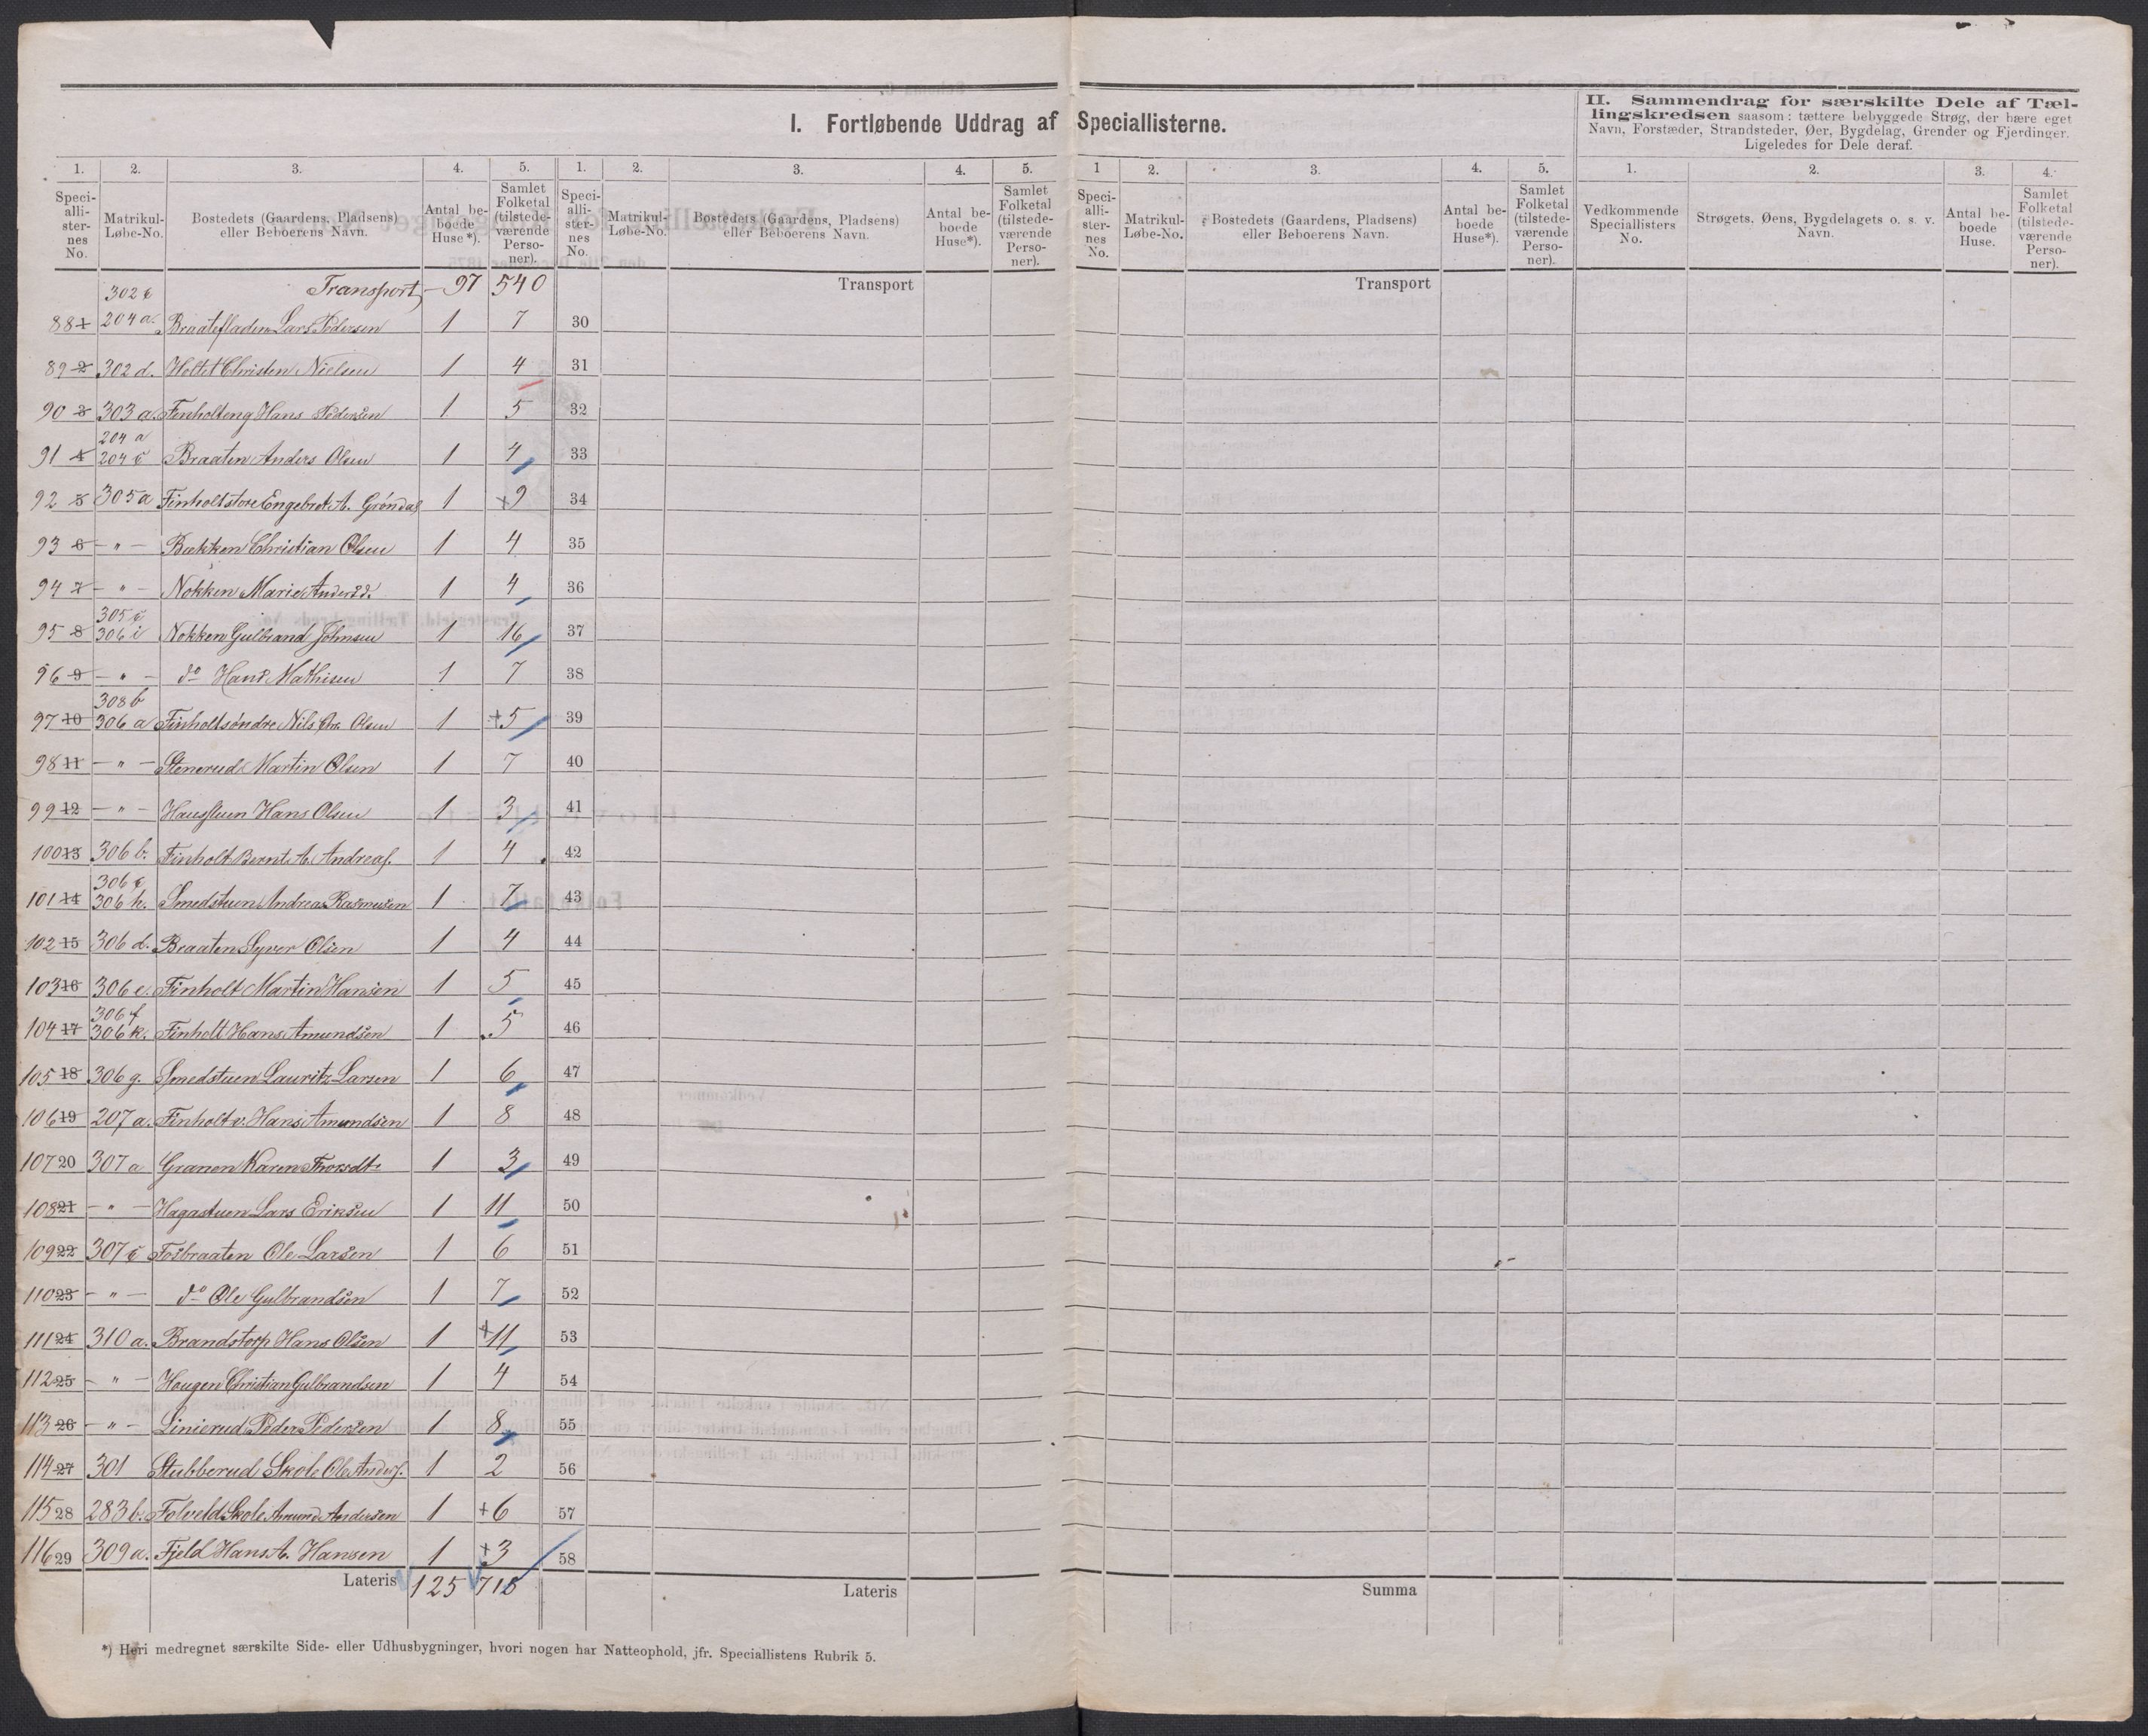 I. Fortløbende Uddrag af Speciallisterne.
II. Sammendrag for særskilte Dele af Tæl-
lingskredsen saasom: tættere bebyggede Strøg, der bære eget
Navn, Forstæder, Strandsteder, Øer, Bygdelag, Grender og Fjerdinger.
Ligeledes for Dele deraf.
1. 2. 3. 4. 5. 1. 2. 3. 4. 5. 1 2. 3. 4. 5. 1. 2. 3. 4.
Speci-alli-ster-nes No. Matrikul-Løbe-No. Bostedets (Gaardens, Pladsens) eller Beboerens Navn. Antal be-boede Huse*). Samlet Folketal (tilstede-værende Perso-ner).
Speci-alli-ster-nes No. Matrikul-Løbe-No. Bostedets (Gaardens, Pladsens) eller Beboerens Navn. Antal be-boede Huse*). Samlet Folketal (tilstede-værende Perso-ner).
Speci-alli-ster-nes No. Matrikul-Løbe-No. Bostedets (Gaardens, Pladsens) eller Beboerens Navn. Antal be-boede Huse*). Samlet Folketal (tilstede-værende Perso-ner).
Vedkommende Speciallisters No. Strøgets, Øens, Bygdelagets o. s. v. Navn. Antal be-boede Huse. Samlet Folketal (tilstede-værende Perso-ner).
Transport 97 540 Transport Transport
302 c
88 1 204 a. Braatefladen Lars Pedersen 1 7 30
89 2 302 d. Holtet Christen Nielsen 1 4 31
90 3 303 a. Finholteng Hans Pedersen 1 5 32
204 a
91 4 204 c Braaten Anders Olsen 1 4 33
92 5 305 a Finholt store Engebret A. Grøndal 1 +9 34
93 6 - " - Bækken Christian Olsen 1 4 35
94 7 - " - Nokken Marie Andersd. 1 4 36
305 c
95 8 306 i Nokken Gulbrand Johnsen 1 16 37
96 9 - " - do Hans Mathisen 1 7 38
308 b
97 10 306 a Finholt søndre Nils Chr. Olsen 1 +5 39
98 11 - " - Stenerud Martin Olsen 1 7 40
99 12 - " - Haugstuen Hans Olsen 1 3 41
100 13 306 b. Finholt Bernt A. Andreas. 1 4 42
306 c
101 14 306 h. Smedstuen Andreas Rasmusen 1 7 43
102 15 306 d. Braaten Syver Olsen 1 4 44
103 16 306 e. Finholt Martin Hansen 1 5 45
306 f
104 17 306 k. Finholt Hans Amundsen 1 5 46
105 18 306 g. Smedstuen Lauritz Larsen 1 6 47
106 19 207 a. Finholt v. Hans Amundsen 1 8 48
107 20 307 a Granen Karen Thorsdt. 1 3 49
108 21 - " - Hagastuen Lars Eriksen 1 11 50
109 22 307 c Fosbraaten Ole Larsen 1 6 51
110 23 - " - do Ole Gulbrandsen 1 7 52
111 24 310 a. Brandstorp Hans Olsen 1 +11 53
112 25 - " - Haugen Christian Gulbrandsen 1 4 54
113 26 - " - Linierud Peder Pedersen 1 8 55
114 27 301 Stubberud Skole Ole Anders. 1 2 56
115 28 283 b. Folveld Skole Amund Andersen 1 +6 57
116 29 309 a. Fjeld Hans A. Hansen 1 +3 58
Lateris 125 Lateris Summa
*) Heri medregnet særskilte Side- eller Udhusbygninger, hvori nogen har Natteophold, jfr. Speciallistens Rubrik 5.